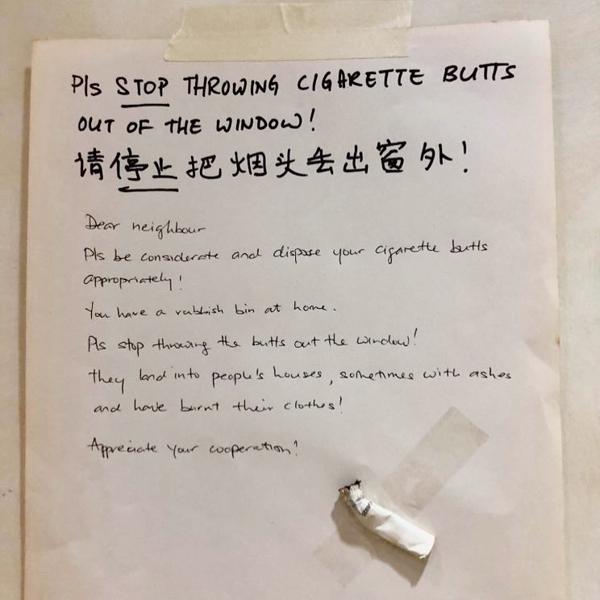 Pls STOP THROWING CIGARETTE BUTTS
OUT OF THE WINDOW!
请停止把烟头丢出窗外!
Dear neighbour
Pls be considerate and dispose your cigarette butts
appropriately!
You have a rubbish bin at home.
Pls stop throwing the butts out the window!
They land into people's houses, sometimes with ashes
and have burnt their clothes!
Appreciate your cooperation!